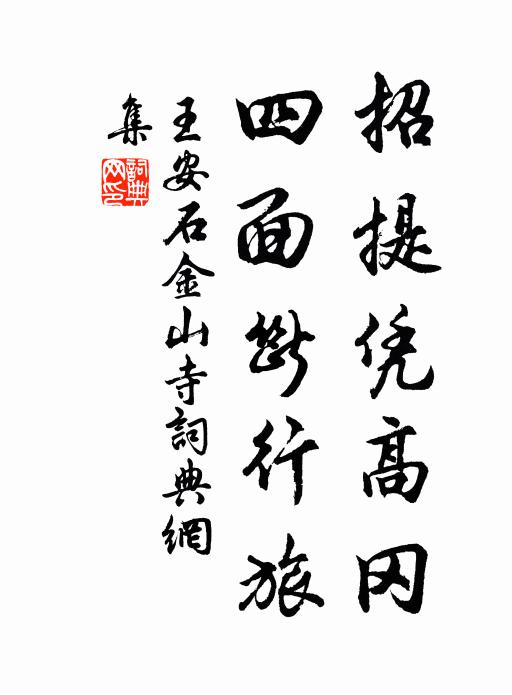 招提凭高冈
四面断行旅
王安石金山寺詞典網
集
詞典网印